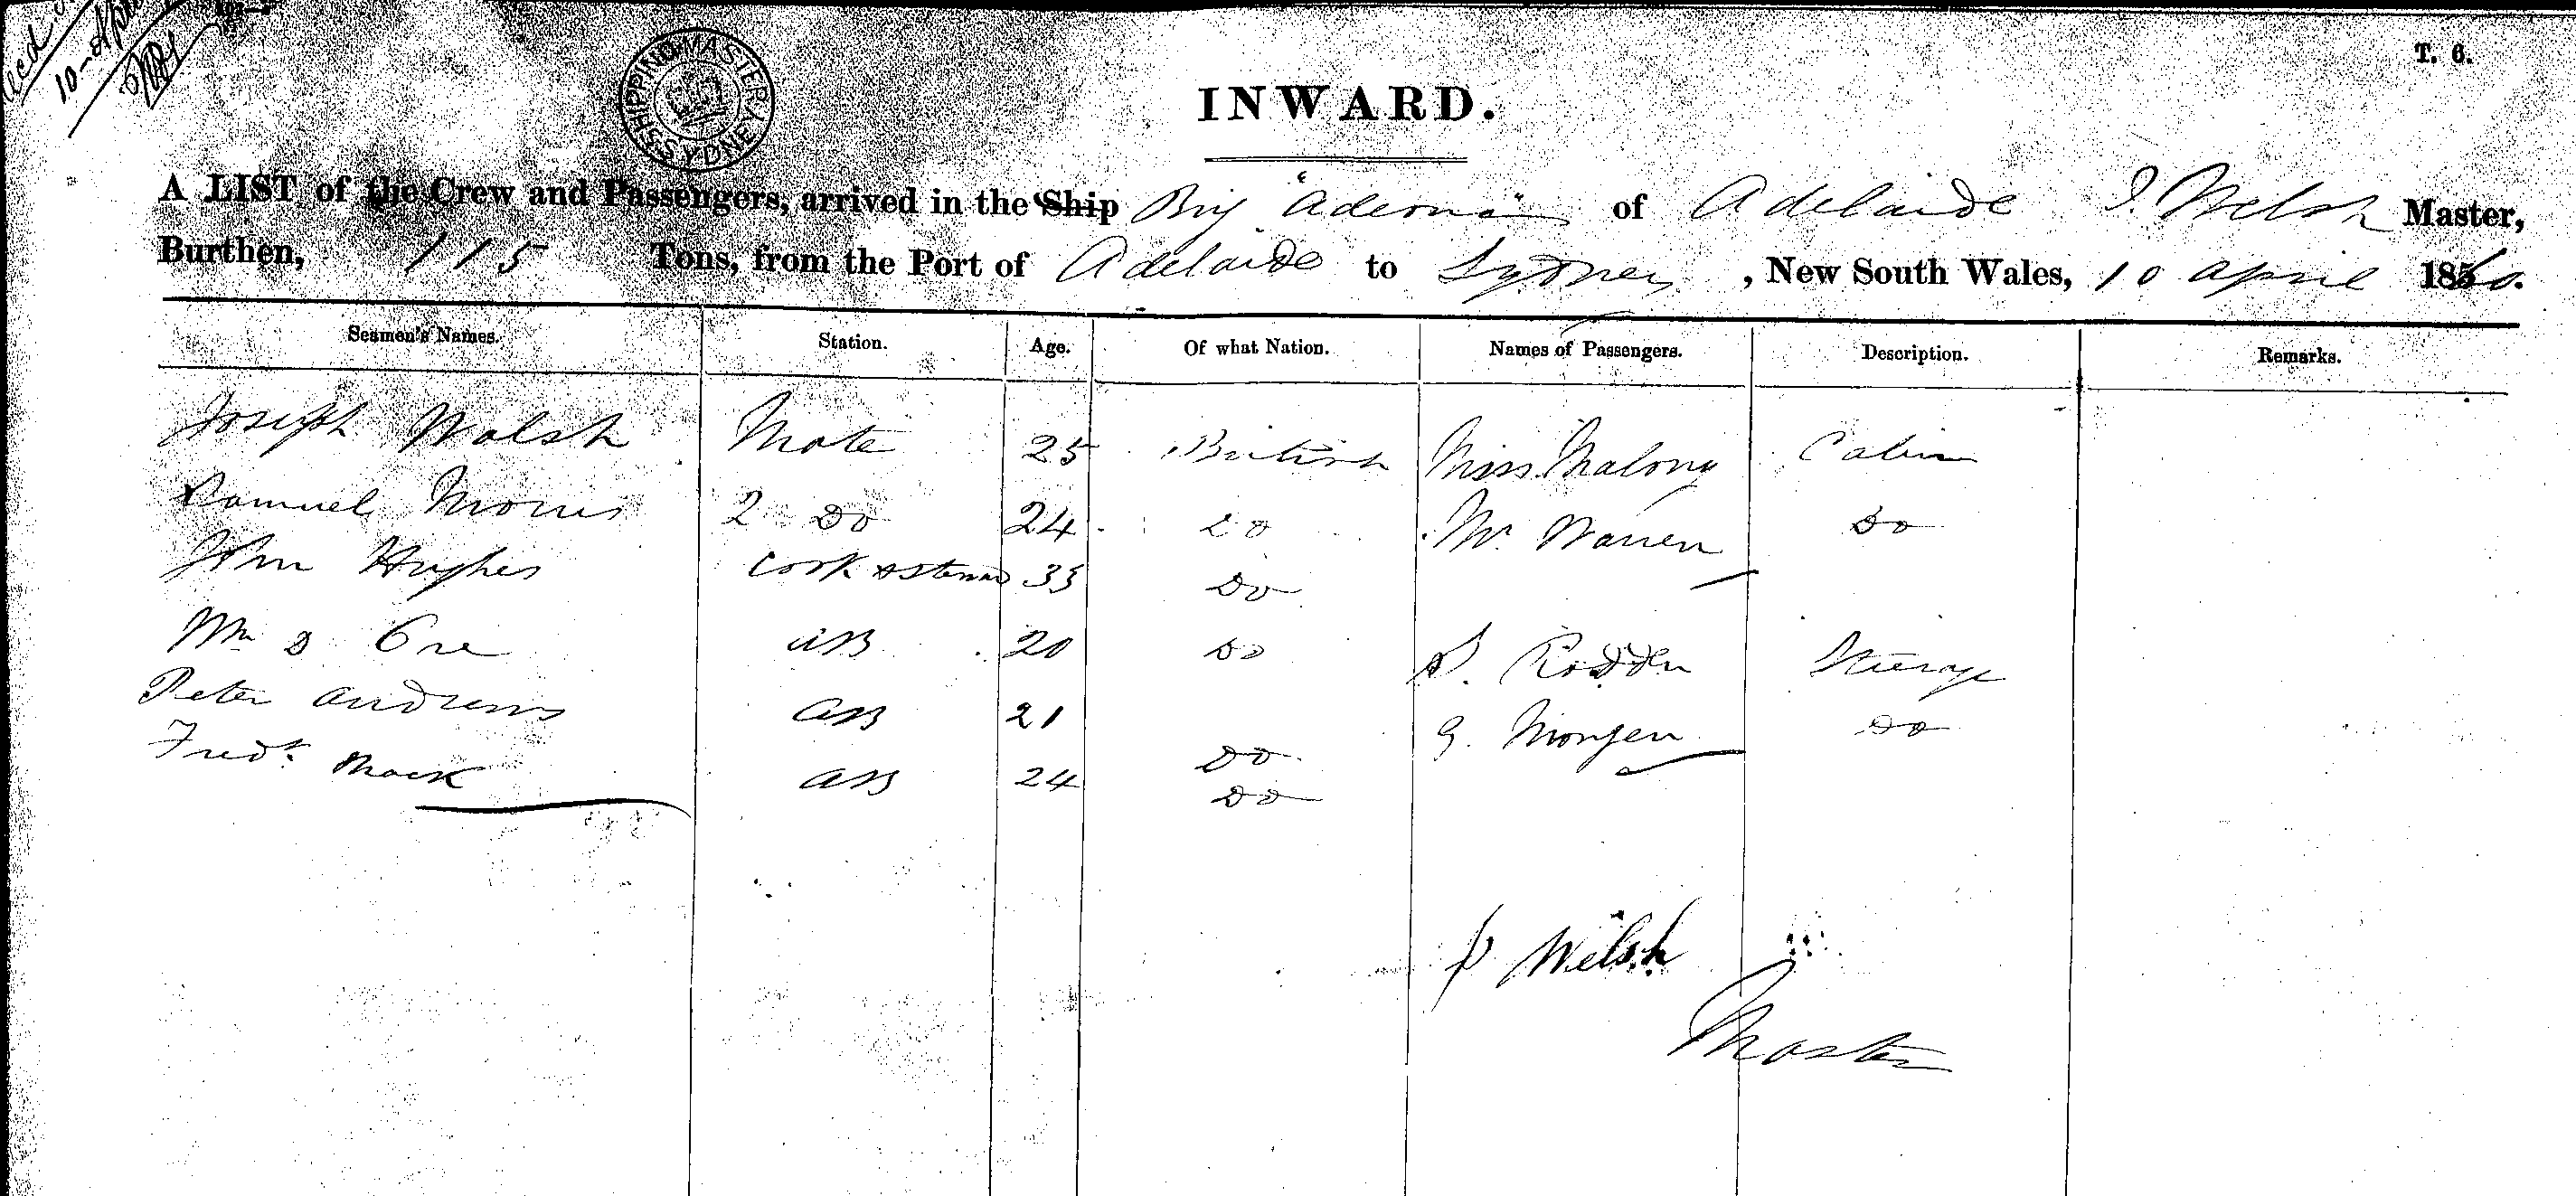 recd
10 April
T. 6.
SHIPPING MASTERS SYDNEY
INWARD.
A LIST of the Crew and Passengers, arrived in the Ship Brig "Adeona" of Adelaide Welsh Master,
Burthen, 115 Tons, from the Port of Adelaide to Sydney, New South Wales, 10 April 1860.
Seamen's Names. Station. Age. Of what Nation. Names of Passengers. Description. Remarks.
Joseph Walsh Mate 25 British Miss Malony Cabin
Samuel Morris 2 Do 24 Do Mr. Warren Do
John Hughes Cook & Steward 33 Do
Wm D Ore AB 20 Do S. Rodden Steerage
Peter Andrews AB 21 Do G. Morgen Do
Fredk. Mack AB 24 Do
P Welsh
Master